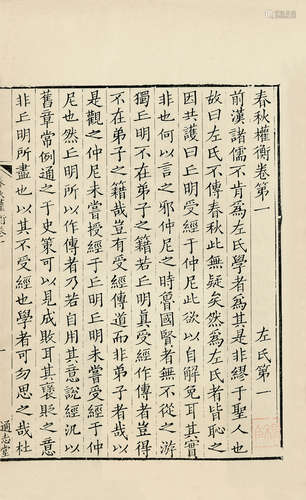 春秋權衡卷第
左氏第一
前漢諸儒不肯為左氏學者為其是非繆于聖人也
故曰左氏不傳春秋此無疑矣然為左氏者皆恥之
因共護曰丘明受經于仲尼此欲以自解免耳其實
非也何以言之邪仲尼之時魯國賢者無不從之游
獨丘明不在弟子之籍若丘明真受經作傳者豈得
不在弟子之籍哉豈有受經傳道而非弟子者哉以
是觀之仲尼未嘗授經于丘明丘明未嘗受經于仲
尼也然丘明所以作傳者乃若自用其意說經汎以
舊章常例通之于史策可以見成敗耳其襃貶之意
非丘明所盡也以其不受經也學者可勿思之哉杜
一
通志堂